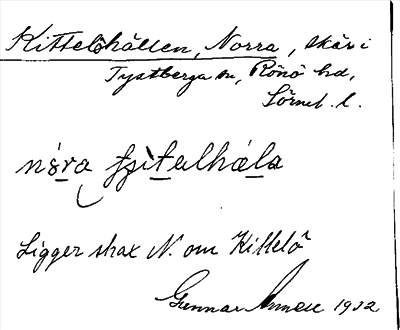 Kittelöhällen, Norra, skär i
Tystberga sn, Rönö hd,
Sörml. l.
nʹs̱ra fʃìṯalhál̲a
Ligger strax N. om Kittelö
Gunnar Ammee 1932